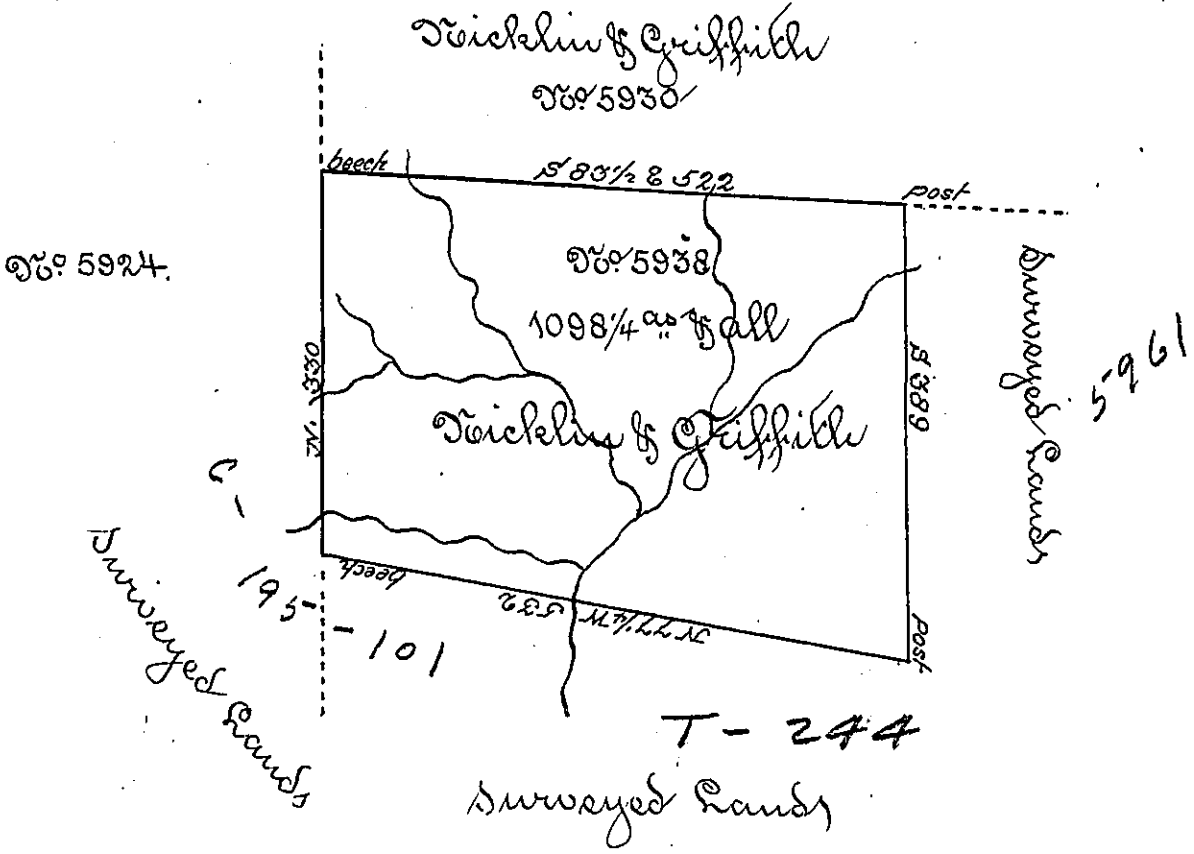 Nicklin & Griffith
No. 5930
beech
S 83½ E 522
post
No. 5924.
No. 5938
1098¼ as. & all
Nicklin & Griffith
N. 330
S 389
Surveyed Lands
5961
C-195-101
Surveyed Lands
beech
N 77¼ W 532
post
T-244
Surveyed Lands